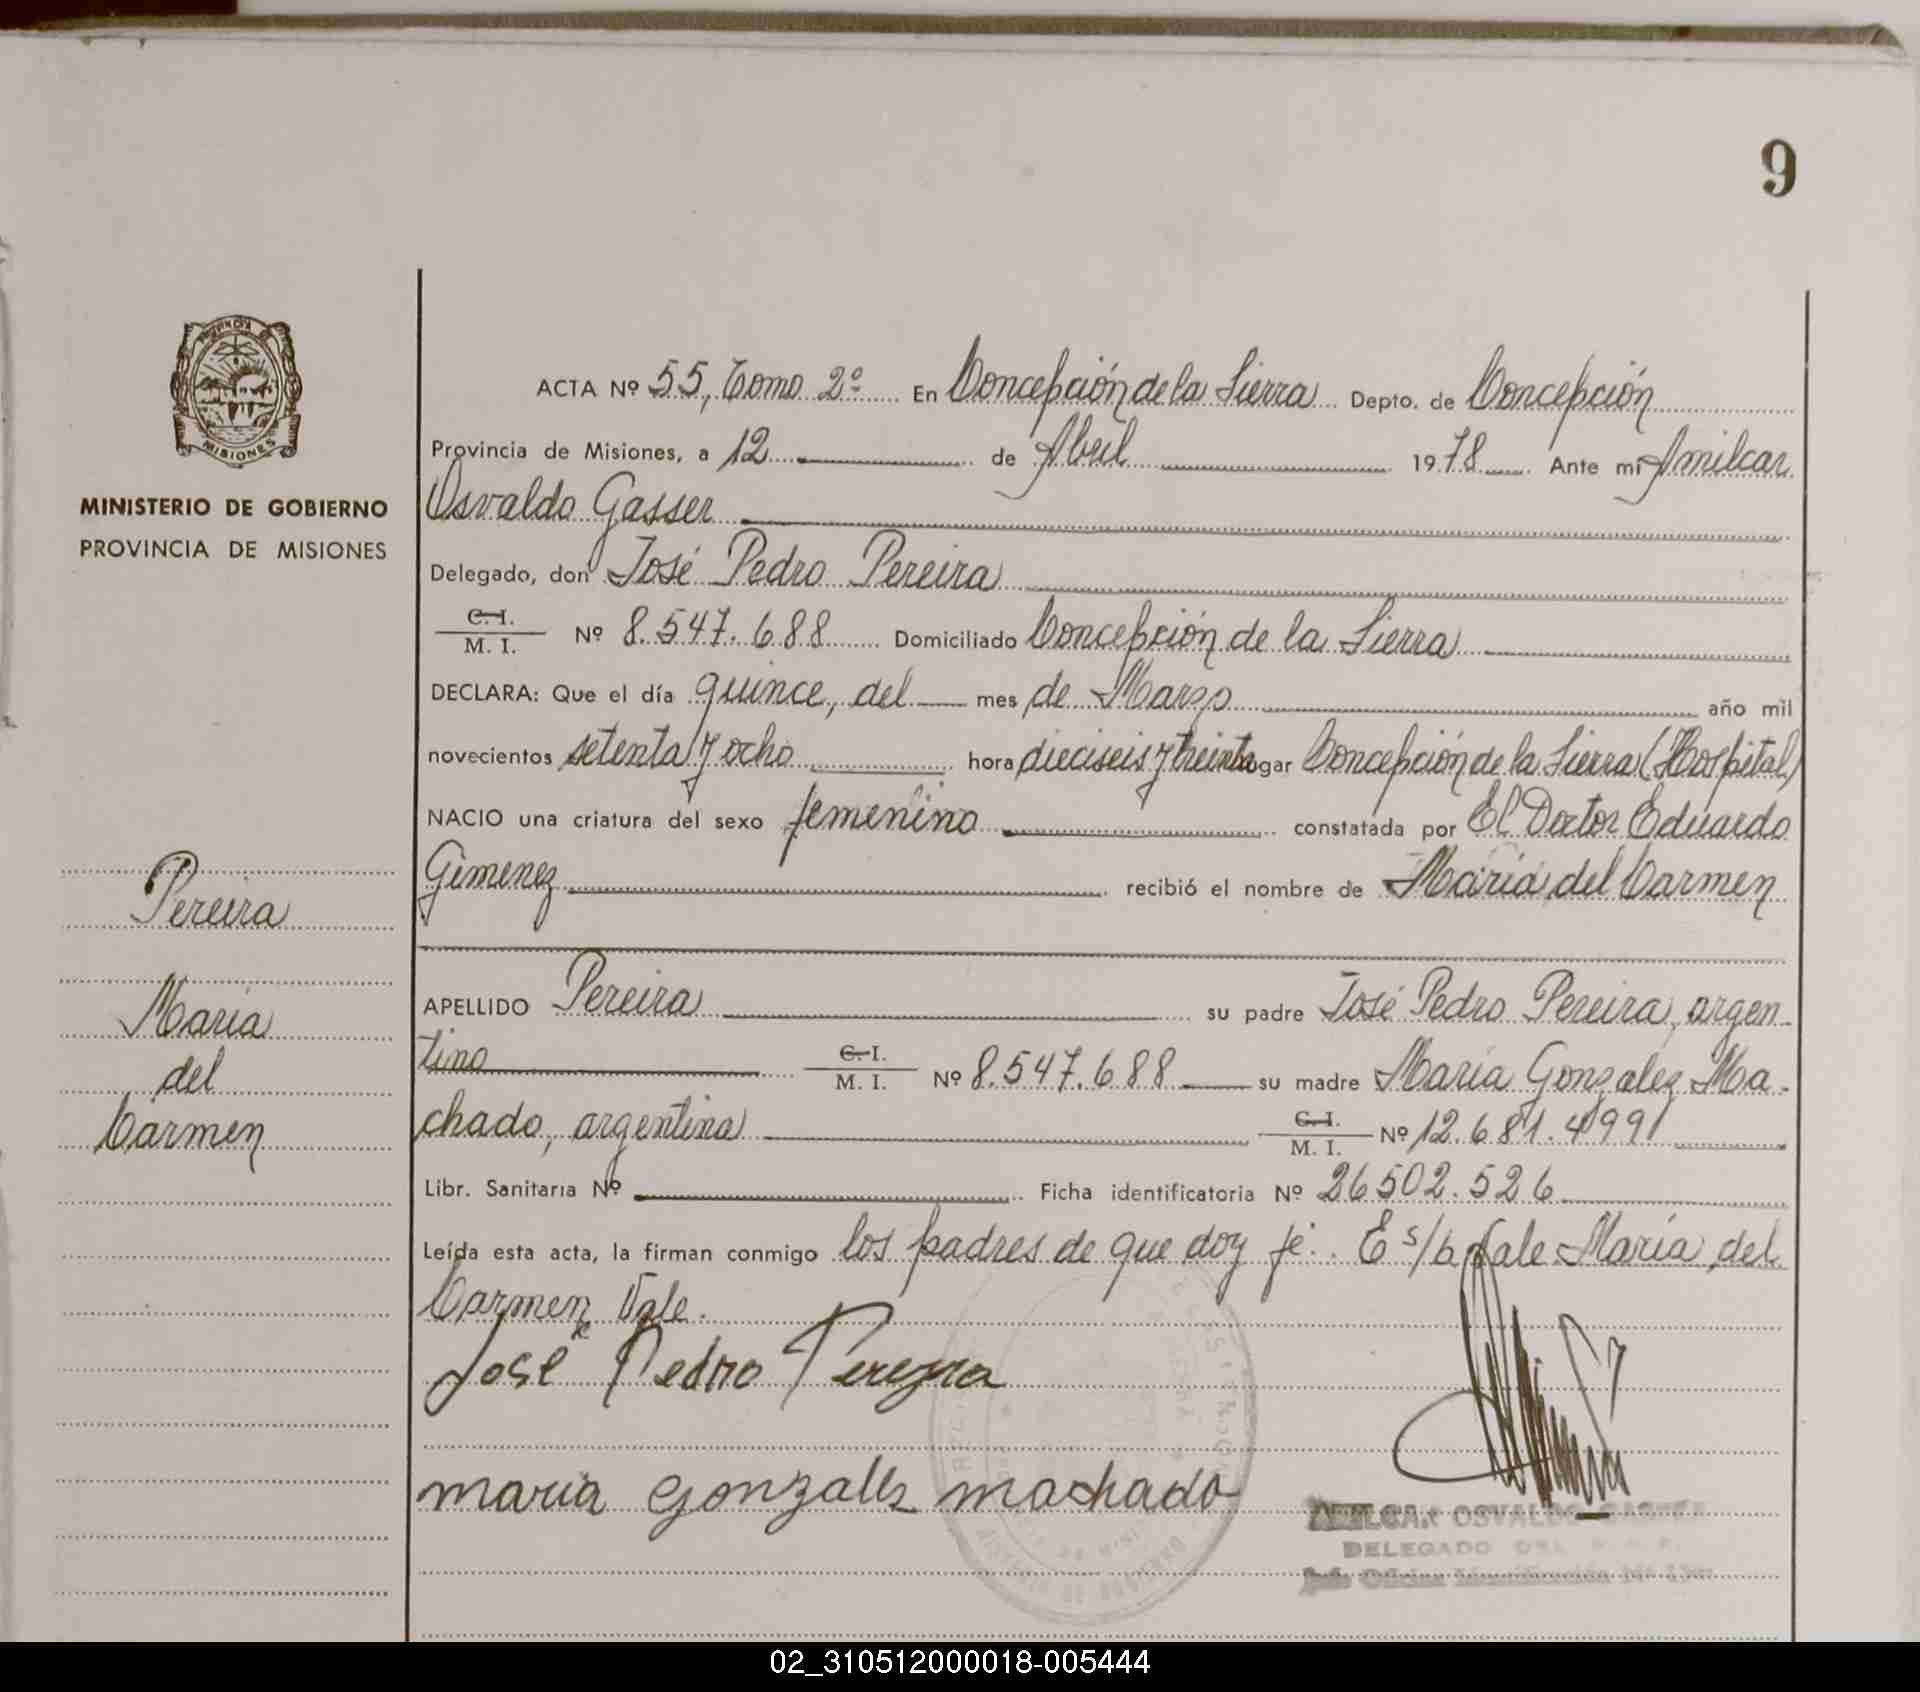 9
PROVINCIA
MISIONES
MINISTERIO DE GOBIERNO
PROVINCIA DE MISIONES
Pereira
María
del
Carmen
ACTA Nº 55, Tomo 2º En Concepción de la Sierra Depto. de Concepción
Provincia de Misiones, a 12 de Abril 1978 Ante mí Amilcar
Osvaldo Gasser
Delegado, don José Pedro Pereira
C. I.
M. I. Nº 8.547.688 Domiciliado Concepción de la Sierra
DECLARA: Que el día quince, del mes de Marzo año mil
novecientos setenta y ocho hora dieciseis y treinta lugar Concepción de la Sierra (Hospital)
NACIO una criatura del sexo femenino constatada por El Doctor Eduardo
Gimenez recibió el nombre de María del Carmen
APELLIDO Pereira su padre José Pedro Pereira, argen-
tino C. I.
M. I. Nº 8.547.688 su madre María Gonzalez Ma-
chado, argentina C. I.
M. I. Nº 12.681.499
Libr. Sanitaria Nº Ficha identificatoria Nº 26502.526
Leída esta acta, la firman conmigo los padres de que doy fé.. E s/b Vale María del
Carmen Vale.
José Pedro Pereyra
maria Gonzalez machado
AMILCAR OSVALDO GASSER
DELEGADO DEL
Jefe Oficina Identificación Nº
02_310512000018-005444